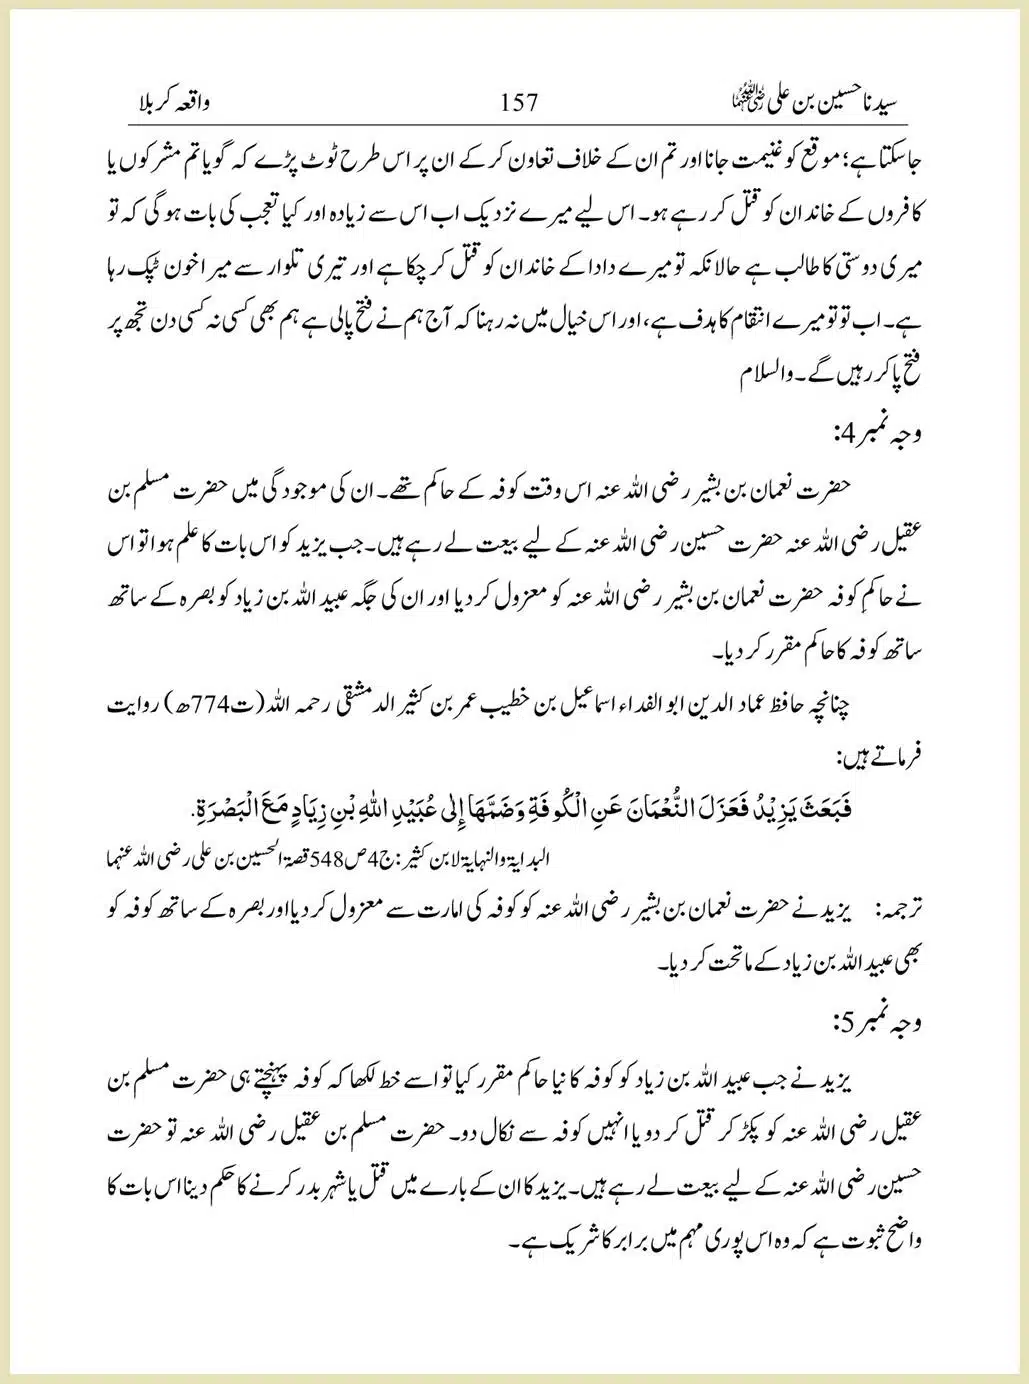 سیدنا حسین بن علی رضی اللہ عنہما 157 واقعہ کربلا
جاسکتا ہے؛ موقع کو غنیمت جانا اور تم ان کے خلاف تعاون کر کے ان پر اس طرح ٹوٹ پڑے کہ گویا تم مشرکوں یا
کافروں کے خاندان کو قتل کر رہے ہو۔ اس لیے میرے نزدیک اب اس سے زیادہ اور کیا تعجب کی بات ہو گی کہ تو
میری دوستی کا طالب ہے حالانکہ تو میرے دادا کے خاندان کو قتل کر چکا ہے اور تیری تلوار سے میرا خون ٹپک رہا
ہے۔ اب تو تو میرے انتقام کا ہدف ہے، اور اس خیال میں نہ رہنا کہ آج ہم نے فتح پالی ہے ہم بھی کسی نہ کسی دن تجھ پر
فتح پاکر رہیں گے۔ والسلام
وجہ نمبر 4:
حضرت نعمان بن بشیر رضی اللہ عنہ اس وقت کوفہ کے حاکم تھے۔ ان کی موجودگی میں حضرت مسلم بن
عقیل رضی اللہ عنہ حضرت حسین رضی اللہ عنہ کے لیے بیعت لے رہے ہیں۔ جب یزید کو اس بات کا علم ہوا تو اس
نے حاکمِ کوفہ حضرت نعمان بن بشیر رضی اللہ عنہ کو معزول کر دیا اور ان کی جگہ عبید اللہ بن زیاد کو بصرہ کے ساتھ
ساتھ کوفہ کا حاکم مقرر کر دیا۔
چنانچہ حافظ عماد الدین ابو الفداء اسماعیل بن خطیب عمر بن کثیر الدمشقی رحمہ اللہ (ت774ھ) روایت
فرماتے ہیں:
فَبَعَثَ يَزِيْدُ فَعَزَلَ النُّعْمَانَ عَنِ الْكُوفَةِ وَضَمَّهَا إِلٰى عُبَيْدِ اللهِ بْنِ زِيَادٍ مَعَ الْبَصْرَةِ.
البدایۃ والنہایۃ لابن کثیر: ج4 ص548 قصۃ الحسین بن علی رضی اللہ عنہما
ترجمہ: یزید نے حضرت نعمان بن بشیر رضی اللہ عنہ کو کوفہ کی امارت سے معزول کر دیا اور بصرہ کے ساتھ کوفہ کو
بھی عبید اللہ بن زیاد کے ماتحت کر دیا۔
وجہ نمبر 5:
یزید نے جب عبید اللہ بن زیاد کو کوفہ کا نیا حاکم مقرر کیا تو اسے خط لکھا کہ کوفہ پہنچتے ہی حضرت مسلم بن
عقیل رضی اللہ عنہ کو پکڑ کر قتل کر دو یا انہیں کوفہ سے نکال دو۔ حضرت مسلم بن عقیل رضی اللہ عنہ تو حضرت
حسین رضی اللہ عنہ کے لیے بیعت لے رہے ہیں۔ یزید کا ان کے بارے میں قتل یا شہر بدر کرنے کا حکم دینا اس بات کا
واضح ثبوت ہے کہ وہ اس پوری مہم میں برابر کا شریک ہے۔